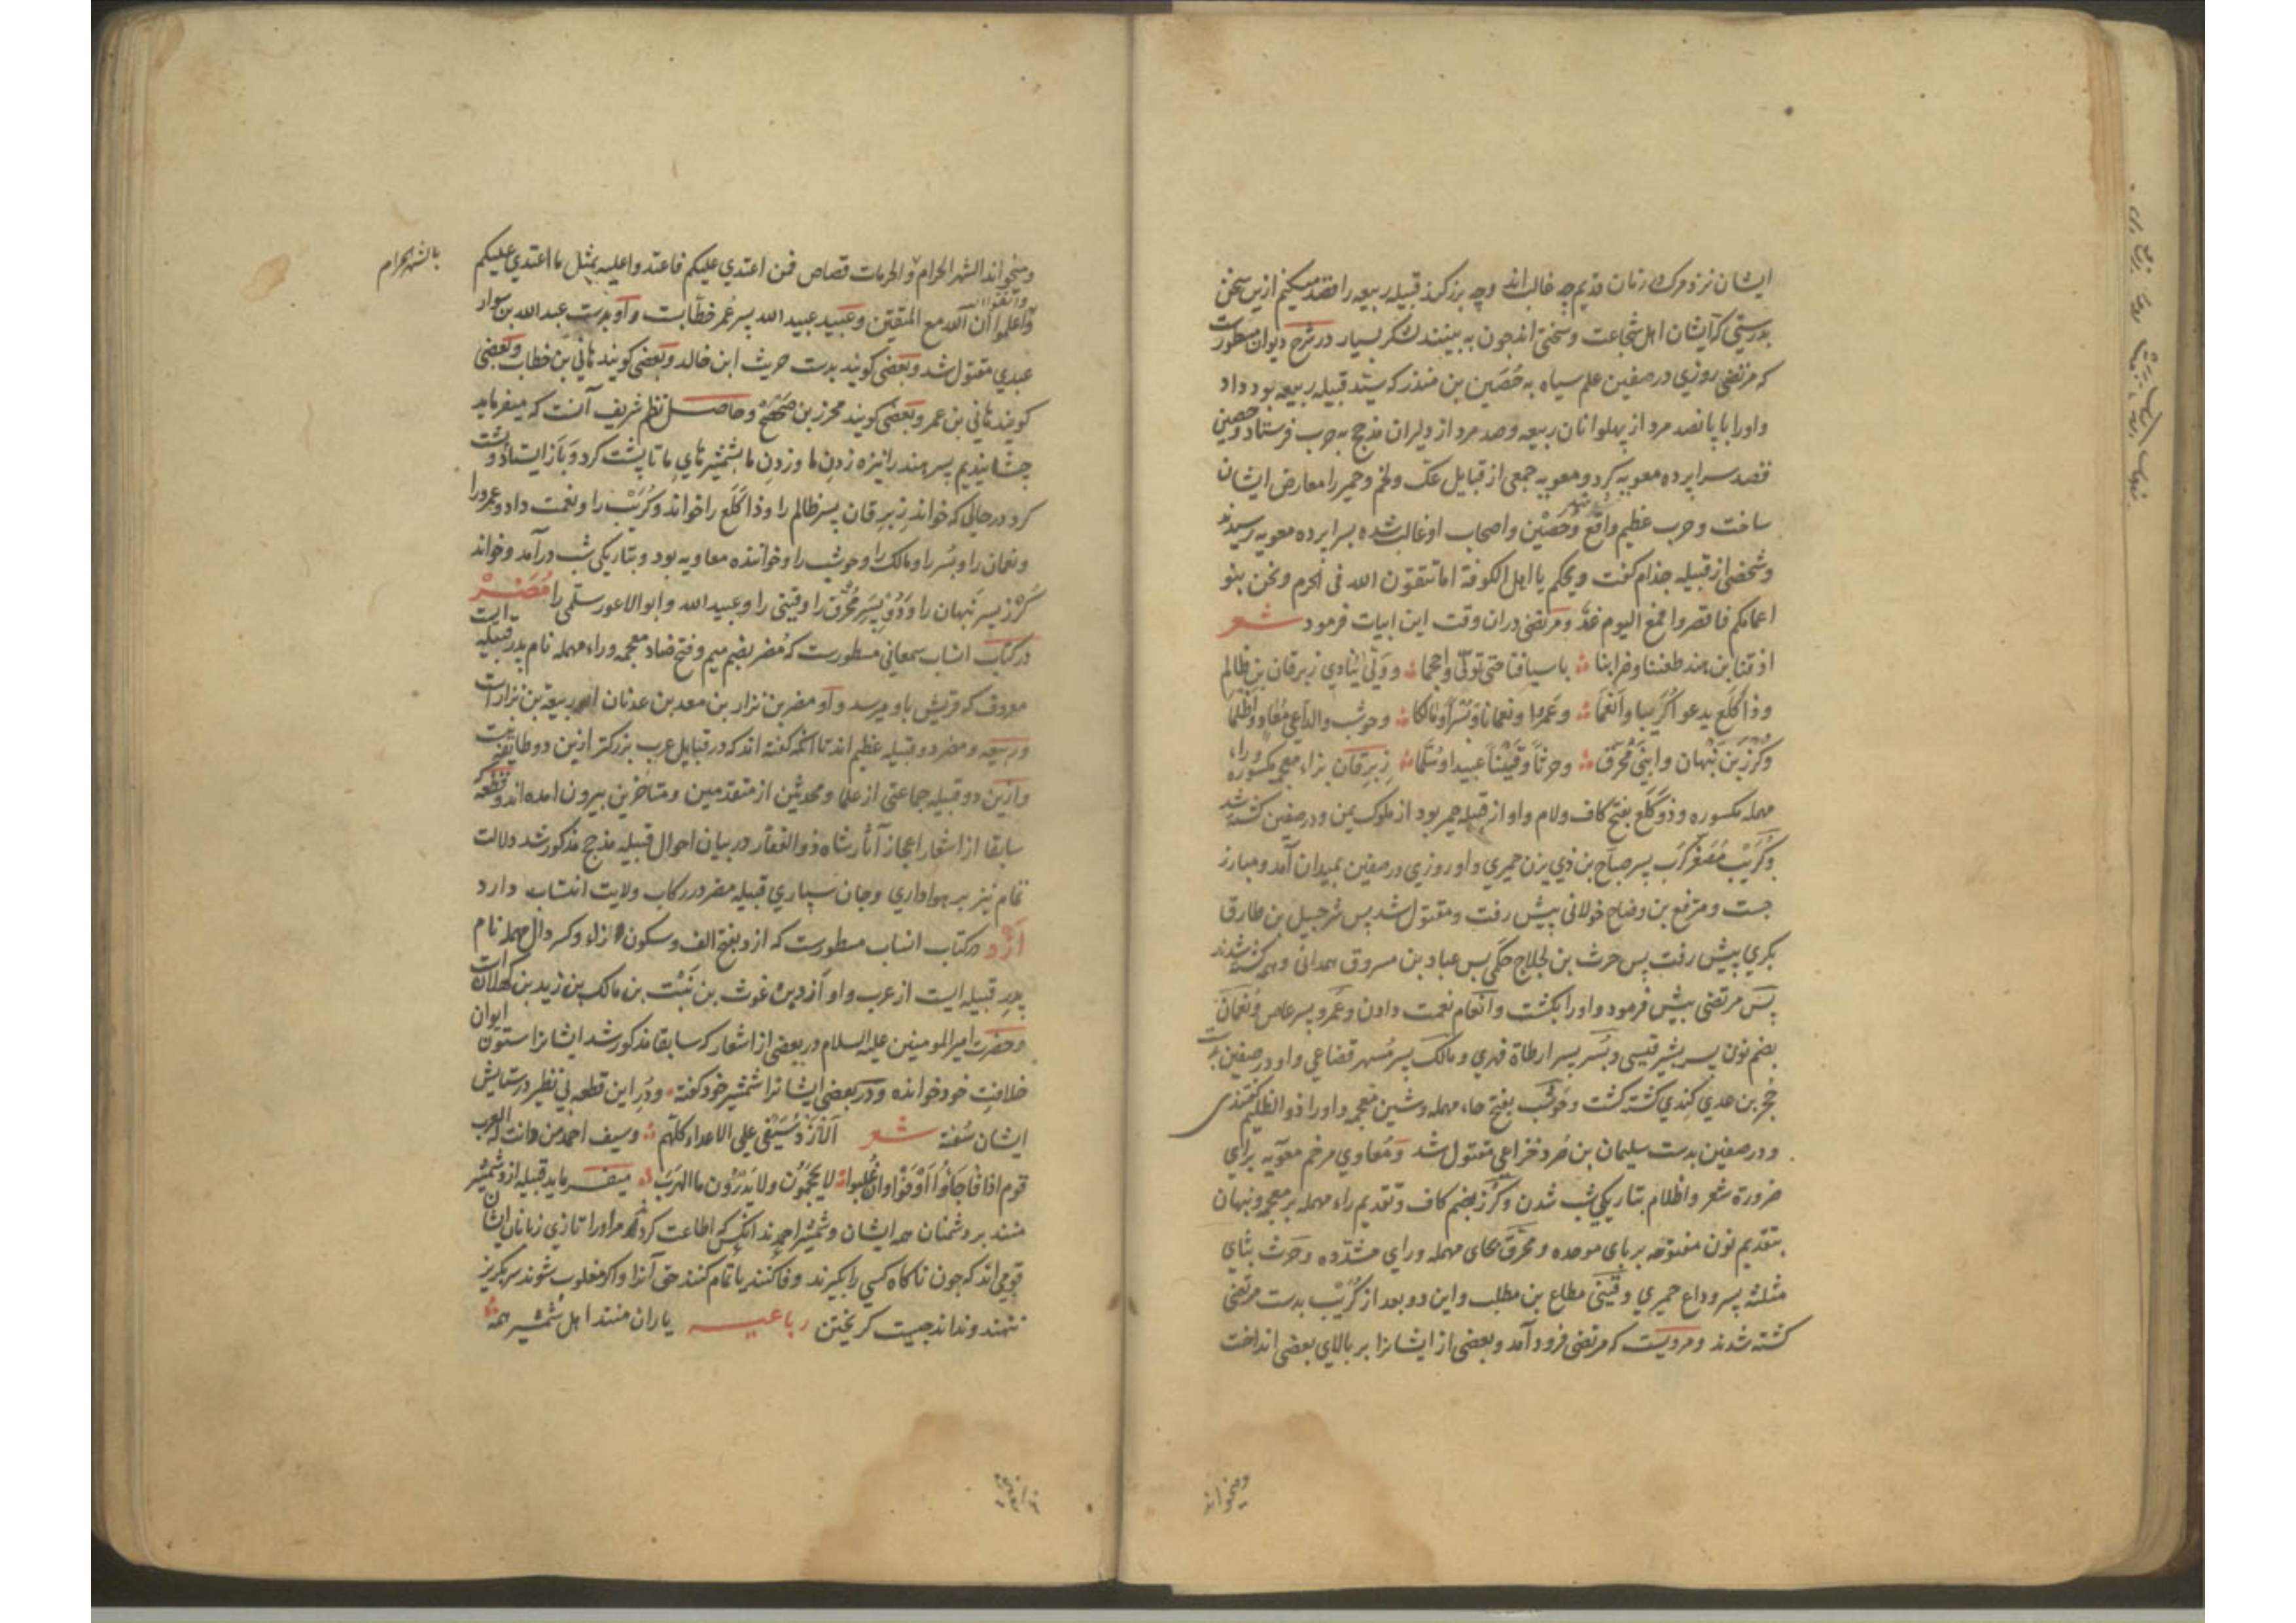 ایشان نزد مرک زنان قدیم چه غالب اند وچه بزرکند قبیله ربیعه را قصد میکنم ازین سخن
بدرستی که ایشان اهل شجاعت وسختی اند جون به بینند لشکر بسیار در شرح دیوان مسطورست
که مرتضی روزی در صفین علم سیاه به حُضَین بن منذر که سید قبیله ربیعه بود داد
واورا با پانصد مرد از پهلوانان ربیعه وصد مرد از دلیران مذحج بحرب فرستاد وحضین
قصد سرابرده معویه کرد ومعویه جمعی از قبایل عک ولخم وحمیر را معارض ایشان
ساخت وحرب عظیم واقع شد وحضین واصحاب او غالب شده بسرابرده معویه رسیدند
وشخصی از قبیله جذام کفت ویحکم یا اهل الکوفة اما تتقون الله فی الحرم ونحن بنو
اعمامکم فاقصروا اليوم ومرتضی دران وقت این ابیات فرمود شعر
اذقنا ابن هند طعننا وضرابنا باسیافنا حتی تولی واحجما وولی ینادی زبرقان بن ظالم
وذا کلع یدعو کریبا وانعما وعمرا ونعمانا وبسرا ومالکا وحوشب والداعی معاو واظلما
وکرز بن نبهان وابنی محرق وحرثا وقینیا عبیدا وسلما زبرقان بزاء معجمه مکسوره وراء
مهمله مکسوره وذو کلع بفتح کاف ولام واو از قبیله حمیر بود از ملوک یمن ودر صفین کشته شد
وکریب مصغر کرب پسر صباح بن ذی یزن حمیری واو روزی در صفین بمیدان آمد ومبارز
جست ومترفع بن وضاح خولانی پیش رفت ومقتول شد پس شرحبیل بن طارق
بکری پیش رفت پس حرث بن لجلاج حکمی پس عباد بن مسروق همدانی وهمه کشته شدند
پس مرتضی پیش فرمود واورا بکشت وانعام نعمت دادن وعمرو پسر عاص ونعمان
بضم نون پسر بشیر قیسی وبسر پسر ارطاة فهری ومالک پسر مسهر قضاعی واو در صفین بدست
حجر بن عدی کندی کشته کشت وحوشب بفتح حاء مهمله وشین معجمه واورا ذو الظلیم کفتندی
ودر صفین بدست سلیمان بن صرد خزاعی مقتول شد ومعاوی مرخم معویه برای
ضرورة شعر واظلام بتاریکی شب شدن وکرز بضم کاف وتقدیم راء مهمله بر معجمه ونبهان
بتقدیم نون مفتوحه بر بای موحده ومحرق بحای مهمله ورای مشدده وحرث بثای
مثلثه پسر وداع حمیری وقینی مطاع بن مطلب واین دو بعد از کریب بدست مرتضی
کشته شدند ومرویست که مرتضی فرود آمد وبعضی از ایشانرا بر بالای بعضی انداخت
ومیخواند
ومیخواند الشهر الحرام والحرمات قصاص فمن اعتدی علیکم فاعتدوا علیه بمثل ما اعتدی علیکم
بالشهر الحرام
واتقوا الله
واعلموا ان الله مع المتقین وعبید عبید الله پسر عمر خطابست واو بدست عبد الله بن سوار
عبدی مقتول شد وبعضی کویند بدست حریث ابن خالد وبعضی کویند هانی بن خطاب وبعضی
کویند هانی بن عمر وبعضی کویند محرز بن صحصح وحاصل نظم شریف آنست که میفرماید
چشانیدیم پسر هند را نیزه زدن ما وزدن ما بشمشیرهای ما تا پشت کرد وباز ایستاد وپشت
کرد در حالی که خواند زبرقان پسر ظالم را وذا کلع را خواند وکریب را ونعمت داد وعمرو را
ونعمان را وبسر را ومالک را وحوشب را وخواننده معاویه بود وبتاریکی شب درآمد وخواند
کرز پسر نبهان را ودو پسر محرق را وقینی را وعبید الله وابو الاعور سلمی را مُضَر
در کتاب انساب سمعانی مسطورست که مضر بضم میم وفتح ضاد معجمه وراء مهمله نام پدر قبیله ایست
معروف که قریش باو میرسد واو مضر بن نزار بن معد بن عدنان ربیعة بن نزار است
وربیعه ومضر دو قبیله عظیم اند تا انکه کفته اند که در قبایل عرب بزرکتر ازین دو طایفه نیست
وازین دو قبیله جماعتی از علما ومحدثین از متقدمین ومتاخرین بیرون امده اند وقطعه
سابقا از اشعار اعجاز آثار شاه ذو الفقار در بیان احوال قبیله مذحج مذکور شد دلالت
تمام نیز بر هواداری وجان سپاری قبیله مضر در رکاب ولایت انتساب دارد
ازد در کتاب انساب مسطورست که ازد بفتح الف وسکون زاء وکسر دال مهمله نام
پدر قبیله ایست از عرب واو ازد بن غوث بن نبت بن مالک بن زید بن کهلان است
وحضرت امیر المومنین علیه السلام در بعضی از اشعار که سابقا مذکور شد ایشانرا ستون ایوان
خلافت خود خوانده ودر بعضی ایشانرا شمشیر خود کفته ودر این قطعه بی نظیر در ستایش
ایشان سفته شعر الازد سیفی علی الاعداء کلهم وسیف احمد من دانت له العرب
قوم اذا فاجأوا اوفوا وان غلبوا لا یحجمون ولا یدرون ما الهرب میفرماید قبیله ازد شمشیر
منند بر دشمنان همه ایشان وشمشیر احمدند انکس که اطاعت کردند مر اورا تازی زبانان ایشان
قومی اند که جون ناکاه کسی را بکیرند وفا کنند یا تمام کنند حق آنرا واکر مغلوب شوند سر بکریز
ننهند وندانند جیست کریختن رباعیه یاران منند اهل شمشیر همه